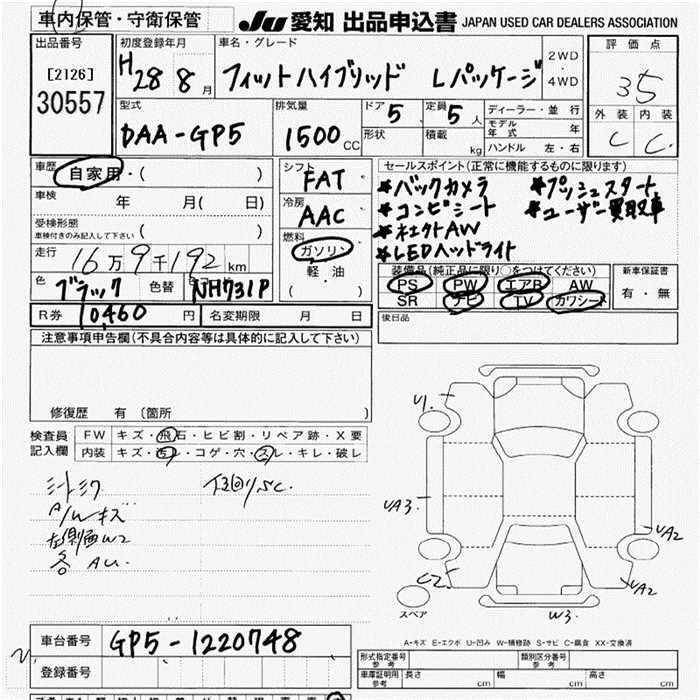 車内保管・守衛保管
JU 愛知 出品申込書 JAPAN USED CAR DEALERS ASSOCIATION
出品番号
[2126]
30557
初度登録年月
H28 8月
車名・グレード
フィットハイブリッド Lパッケージ
2WD
4WD
評価点
35
外装 内装
C C
型式
DAA-GP5
排気量
1500CC
ドア 5
形状
定員 5人
積載 kg
ディーラー・並行
モデル年式 年
ハンドル 左・右
車歴
自家用・( )
車検
年 月( 日)
受検形態
車検付きのみ記入して下さい ( )
走行
16万9千192km
色
ブラック
色替
NH731P
シフト
FAT
冷房
AAC
燃料
ガソリン
軽油
( )
セールスポイント(正常に機能するものに限ります)
*バックカメラ *プッシュスタート
*コンビシート *ユーザー買取車
*社外AW
*LEDヘッドライト
装備品(純正品に限り○をつけてください)
PS PW エアB AW
SR ナビ TV カワシート
新車保証書
有・無
R券 10,460円 名変期限 月 日
後日品
注意事項申告欄(不具合内容等は具体的に記入して下さい)
修復歴 有(箇所 )
検査員
記入欄
FW キズ・飛石・ヒビ割・リペア跡・X要
内装 キズ・汚レ・コゲ・穴・スレ・キレ・破レ
A/W キズ
左側面W2
各 AU.
下回りSC.
U1.
UA3.
UA2
UA2
C2.
W3.
スペア
A-キズ E-エクボ U-凹み W-補修跡 S-サビ C-腐食 XX-交換済
車台番号
GP5-1220748
登録番号
形式指定番号
参考
類別区分番号
参考
車庫証明用
参考
長さ cm 幅 cm 高さ cm